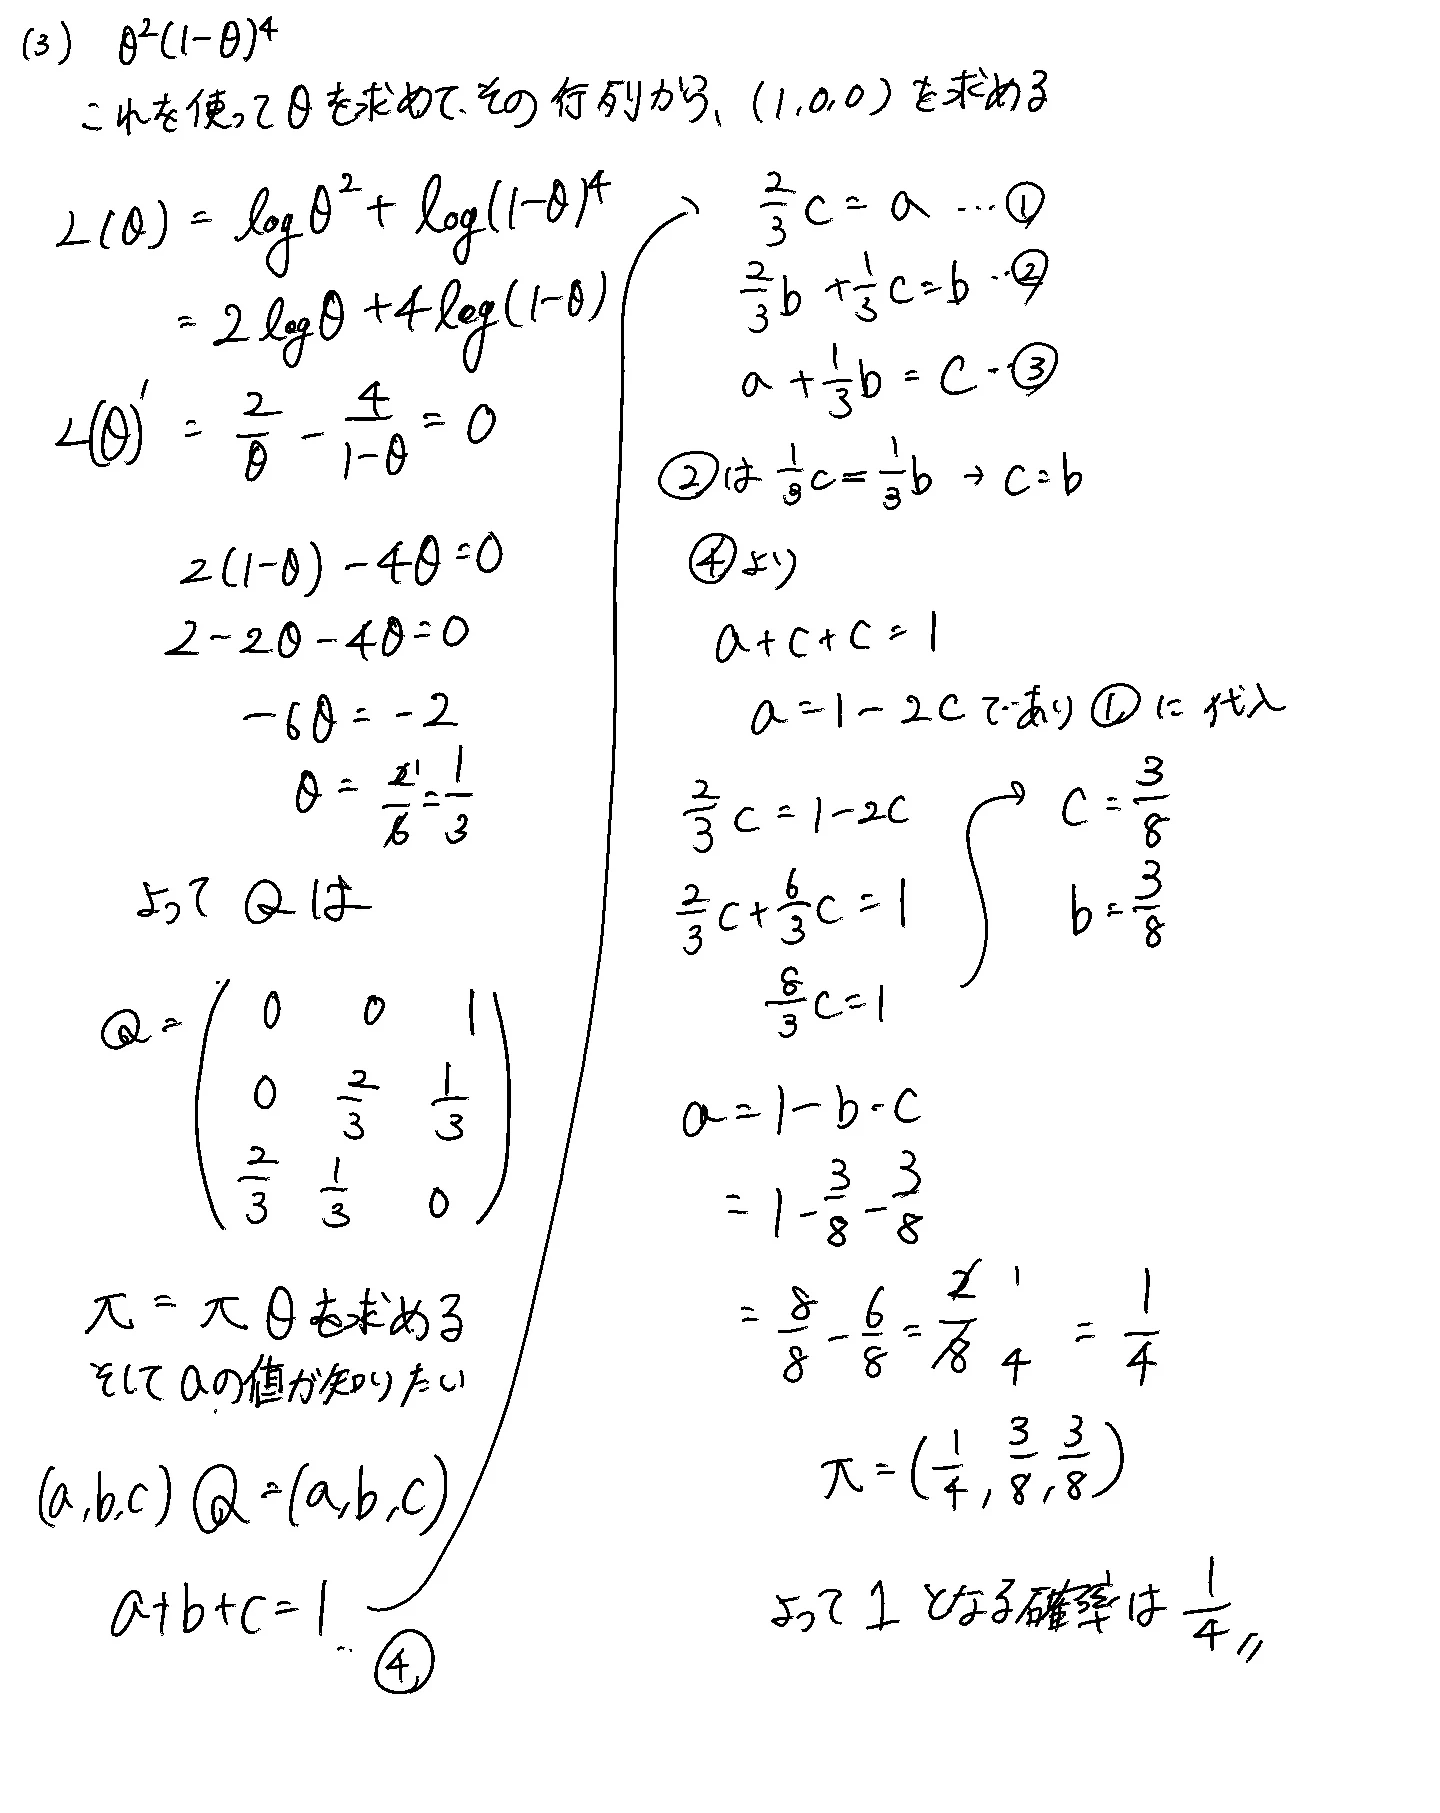 (3) θ²(1-θ)⁴
これを使ってθを求めて、その行列から、(1,0,0)を求める
L(θ) = logθ² + log(1-θ)⁴
= 2logθ + 4log(1-θ)
L(θ)' = 2/θ - 4/(1-θ) = 0
2(1-θ) - 4θ = 0
2 - 2θ - 4θ = 0
-6θ = -2
θ = 2/6 = 1/3
よって Q は
Q = ( 0 0 1
0 2/3 1/3
2/3 1/3 0 )
π = πθを求める
そしてaの値が知りたい
(a,b,c)Q = (a,b,c)
a+b+c=1 … ④
→ 2/3c = a … ①
2/3b + 1/3c = b … ②
a + 1/3b = c … ③
②は 1/3c = 1/3b → c=b
④より
a+c+c=1
a=1-2cであり①に代入
2/3c = 1-2c
2/3c + 6/3c = 1
8/3c = 1
→ c = 3/8
b = 3/8
a = 1-b-c
= 1 - 3/8 - 3/8
= 8/8 - 6/8 = 2/8 1 4 = 1/4
π = (1/4, 3/8, 3/8)
よって1となる確率は 1/4 〃